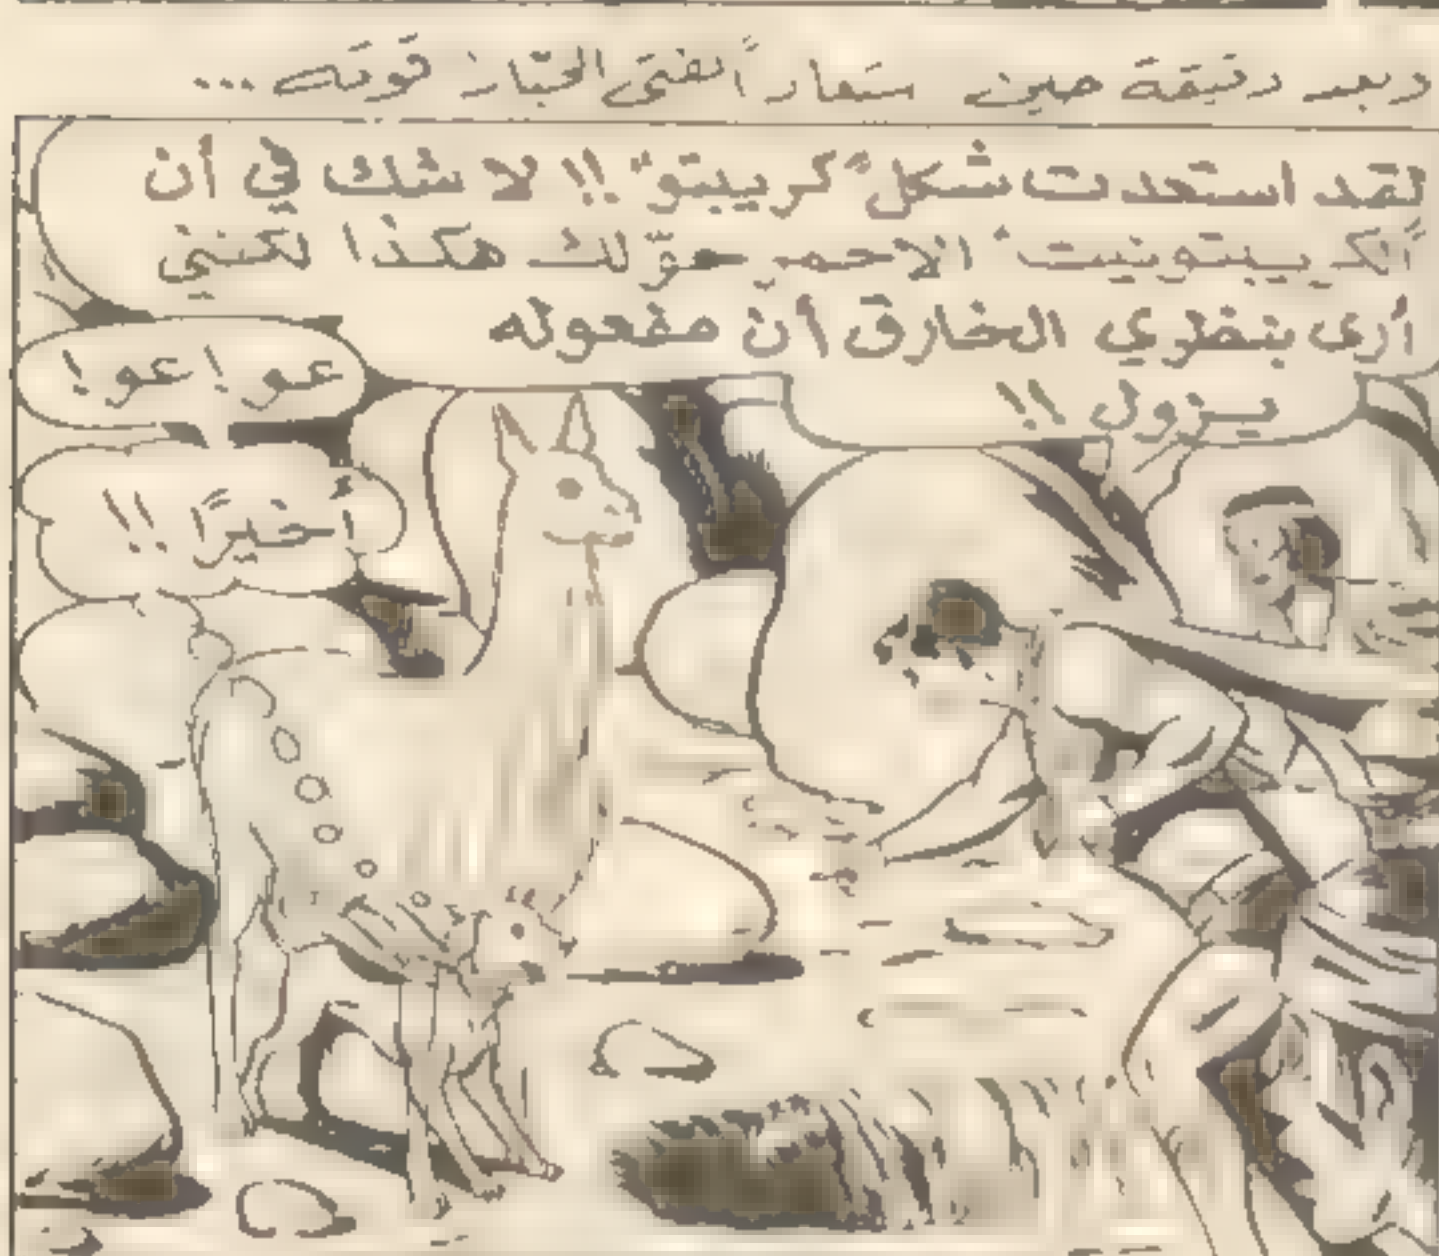 وبعد دقيقة حين ستعاد الفتى الجبّار قوته ...
لقد استعدت شكل "كريبتو" !! لا شك في أن
"الكريبتونيت" الاحمر حوّلك هكذا لكنني
أرى بنظري الخارق أن مفعوله
يزول !!
عو ! عو !
أخيرًا !!